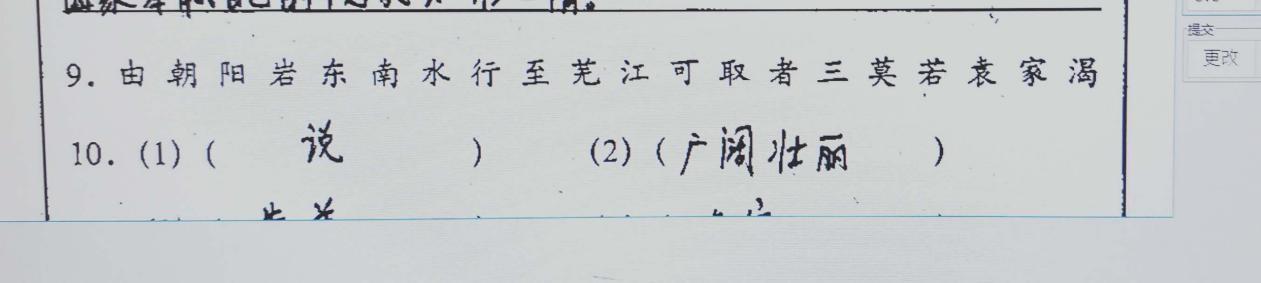 提交
更改
9. 由朝阳岩东南水行至芜江可取者三莫若袁家渴
10. (1) ( 说 ) (2) ( 广阔壮丽 )